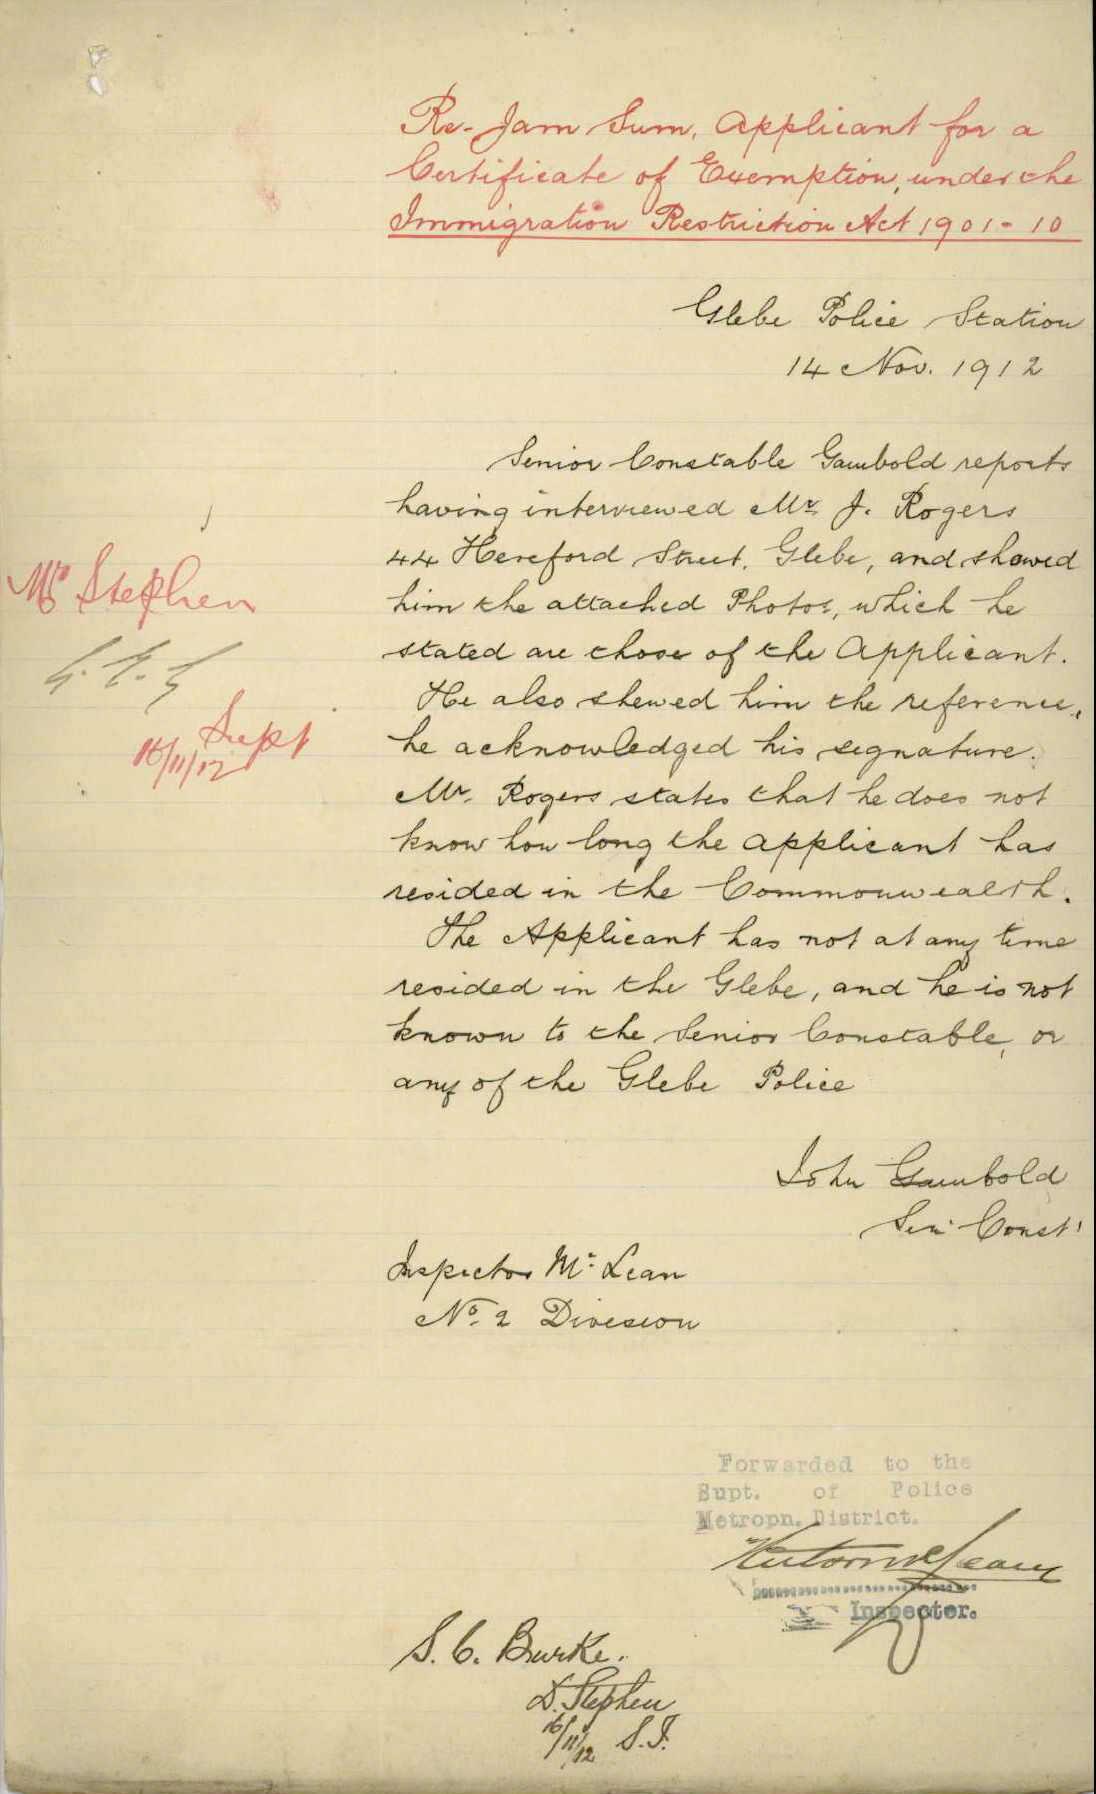 Re- Jam Sum, Applicant for a
Certificate of Exemption, under the
Immigration Restriction Act 1901-10
Glebe Police Station
14 Nov. 1912
Senior Constable Gambold reports
having interviewed Mr. J. Rogers
44 Hereford Street, Glebe, and shewed
him the attached Photos, which he
stated are those of the Applicant.
He also shewed him the reference,
he acknowledged his signature.
Mr. Rogers states that he does not
know how long the applicant has
resided in the Commonwealth.
The Applicant has not at any time
resided in the Glebe, and he is not
known to the Senior Constable, or
any of the Glebe Police
John Gambold
Sen. Const.
Mr Stephen
Supt
16/11/12
Inspector Mc. Lean
No. 2 Division
Forwarded to the
Supt. of Police
Metropn. District.
Inspector.
S. C. Burke.
D. Stephen
16/11/12 S.I.